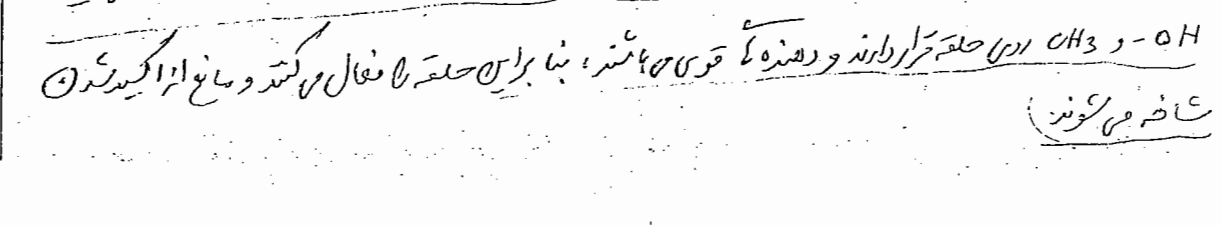 -OH و CH3 روی حلقه قرار دارند و دهنده‌های قوی می‌باشند، بنابراین حلقه را فعال می‌کنند و مانع از اکسید شدن
شاخه می‌شوند.